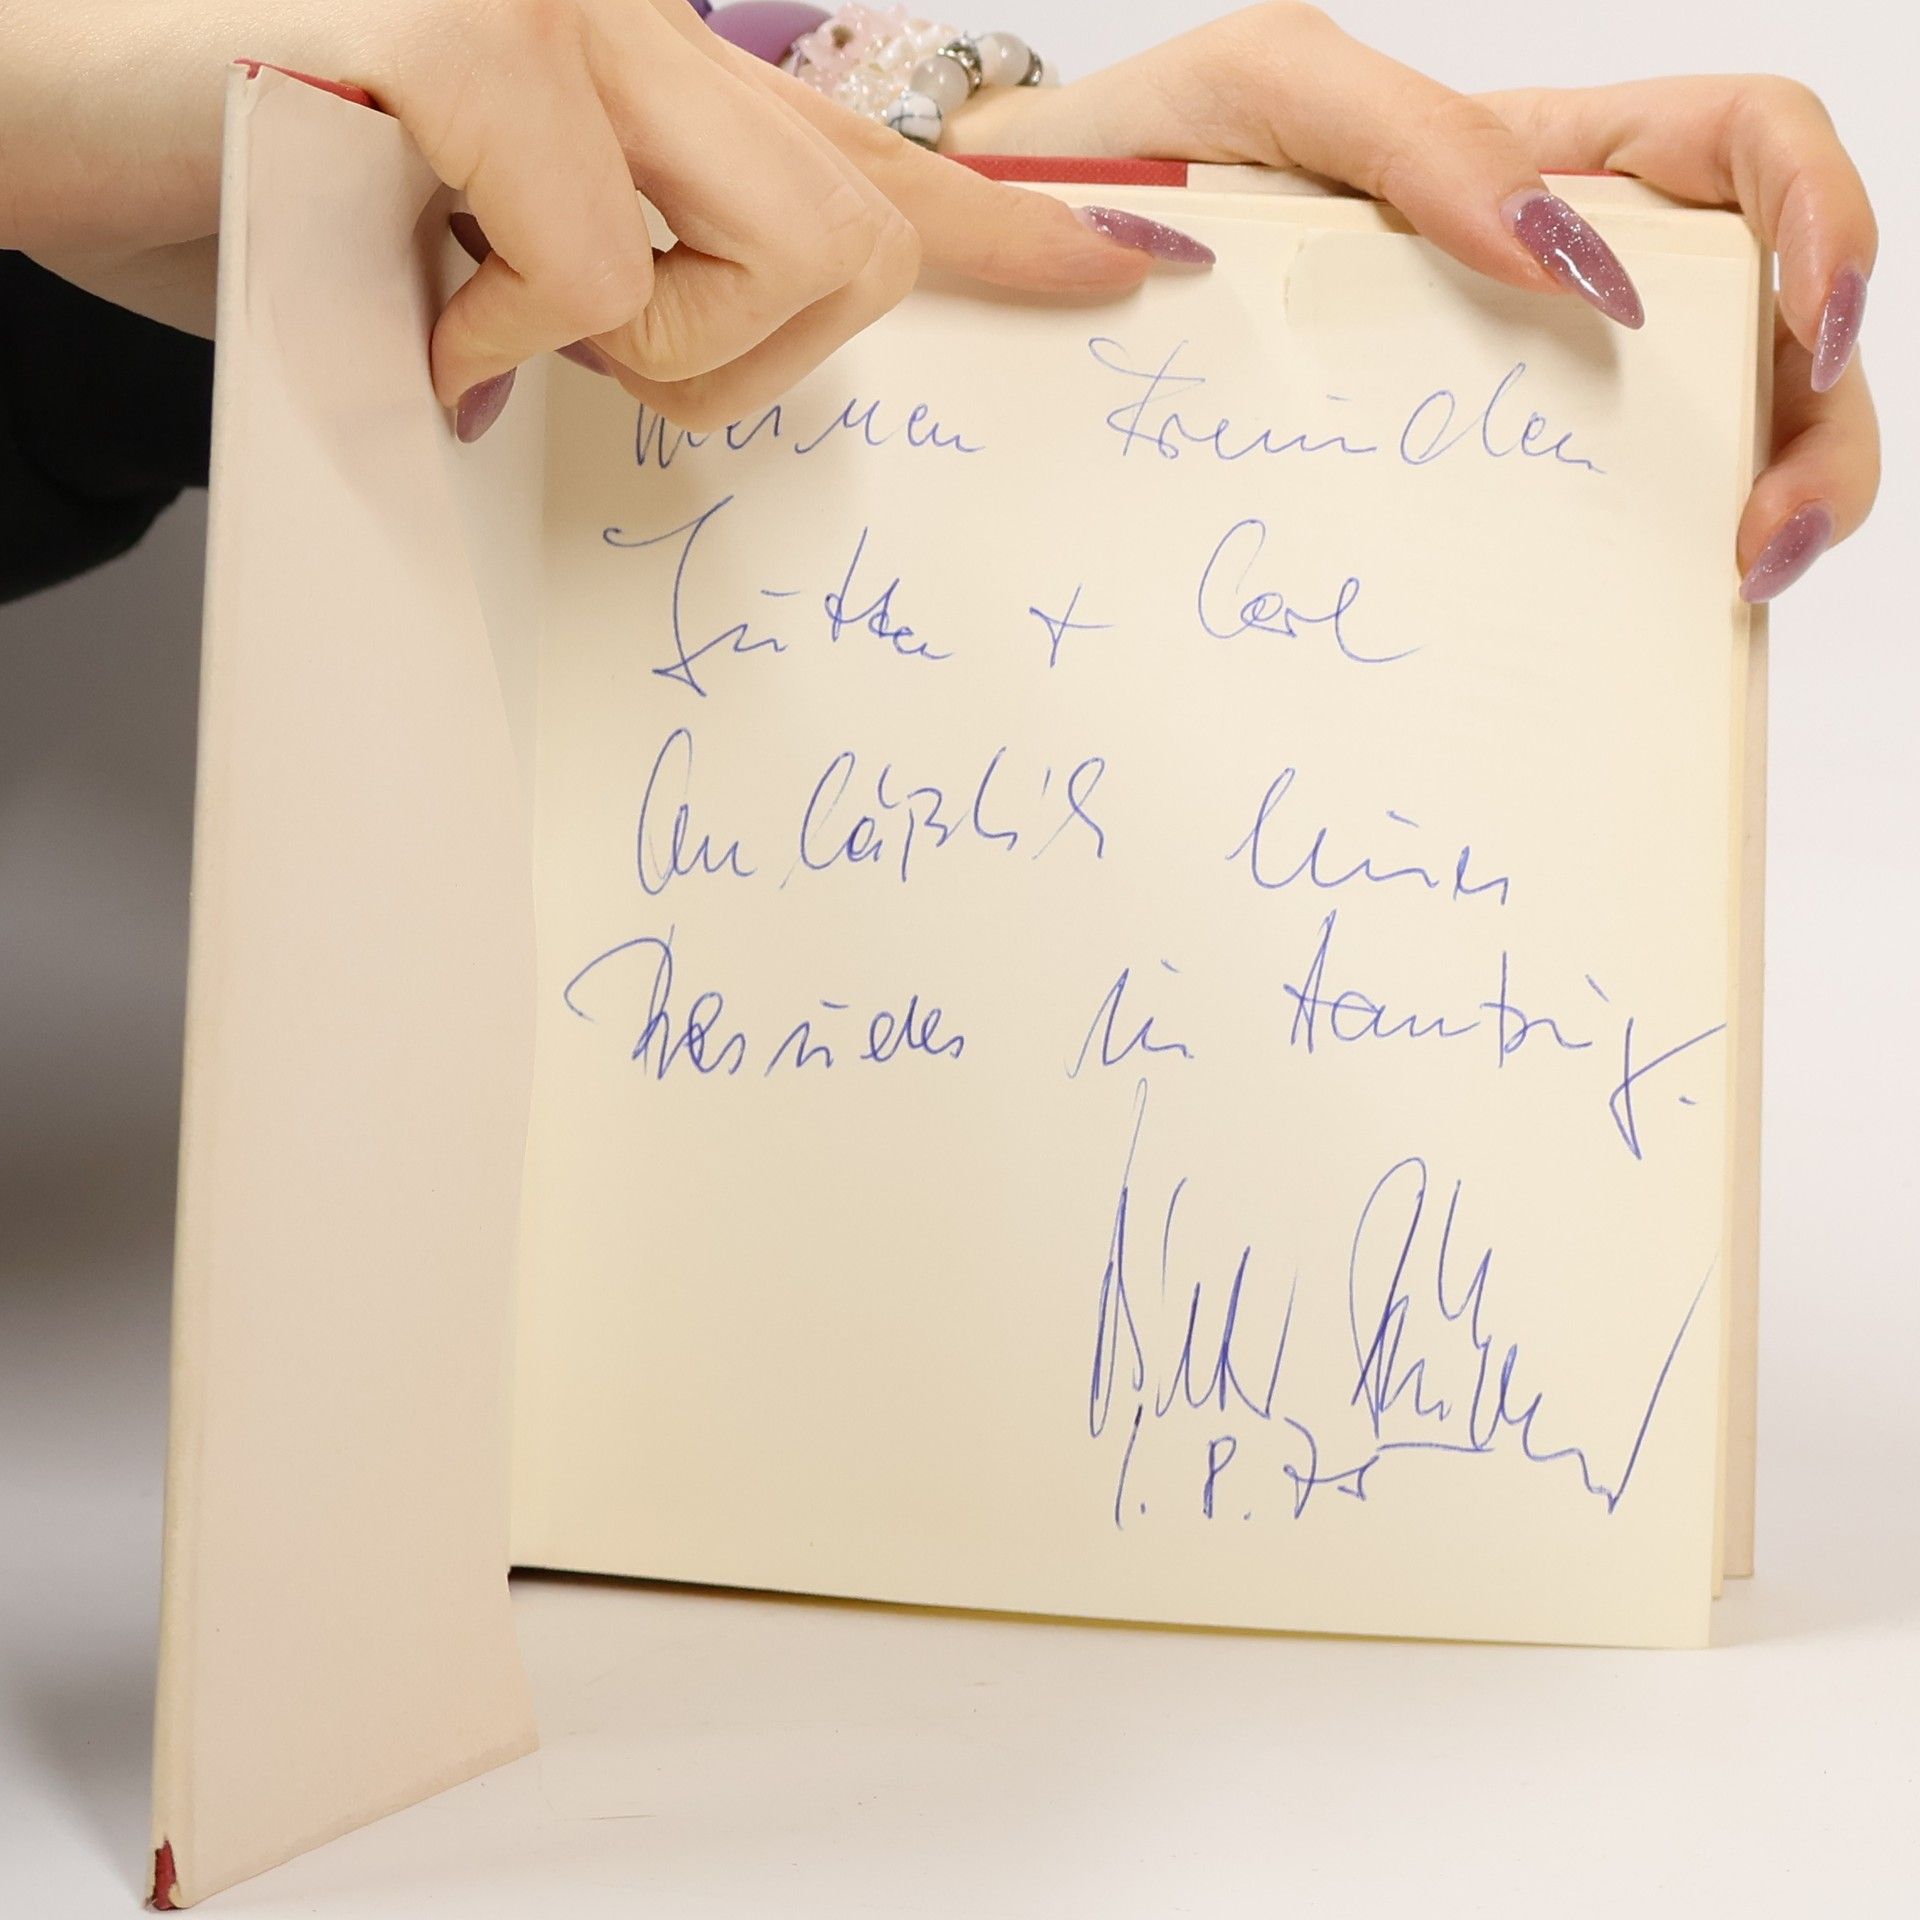 Meinen Freunden
Jutta + Carl
Anläßlich eines
Besuches in Hamburg.
1.8.75